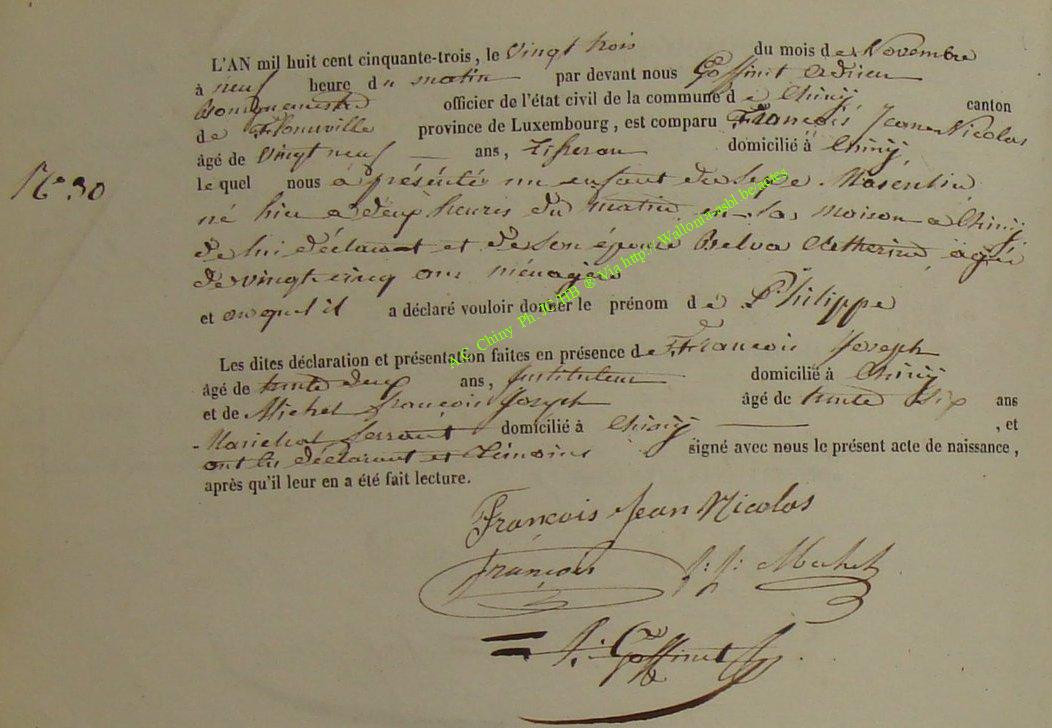 L'AN mil huit cent cinquante-trois, le vingt trois du mois de Novembre
à neuf heure du matin par devant nous Goffinet
Bourguemestre officier de l'état civil de la commune de Chiny canton
de Florenville province de Luxembourg, est comparu François Jean Nicolas
âgé de vingt neuf ans, Tisseran domicilié à Chiny,
N° 30
le quel nous a présenté un enfant du sexe Masculin
né hier à deux heures du matin en sa maison à Chiny
de lui déclarant et de son épouse Catherine agée
de vingt cinq ans ménagère
et auquel il a déclaré vouloir donner le prénom de Philippe
Les dites déclaration et présentation faites en présence de François Joseph
âgé de trente deux ans, Instituteur domicilié à Chiny
et de Michel François Joseph âgé de trente six ans
Marichal ferrant domicilié à Chiny , et
ont les déclarant et témoins signé avec nous le présent acte de naissance,
après qu'il leur en a été fait lecture.
François Jean Nicolas
François f. j. Michel
Goffinet
A.C. Chiny Ph. JC HB ® Via http://Wallonia-asbl.be/actes